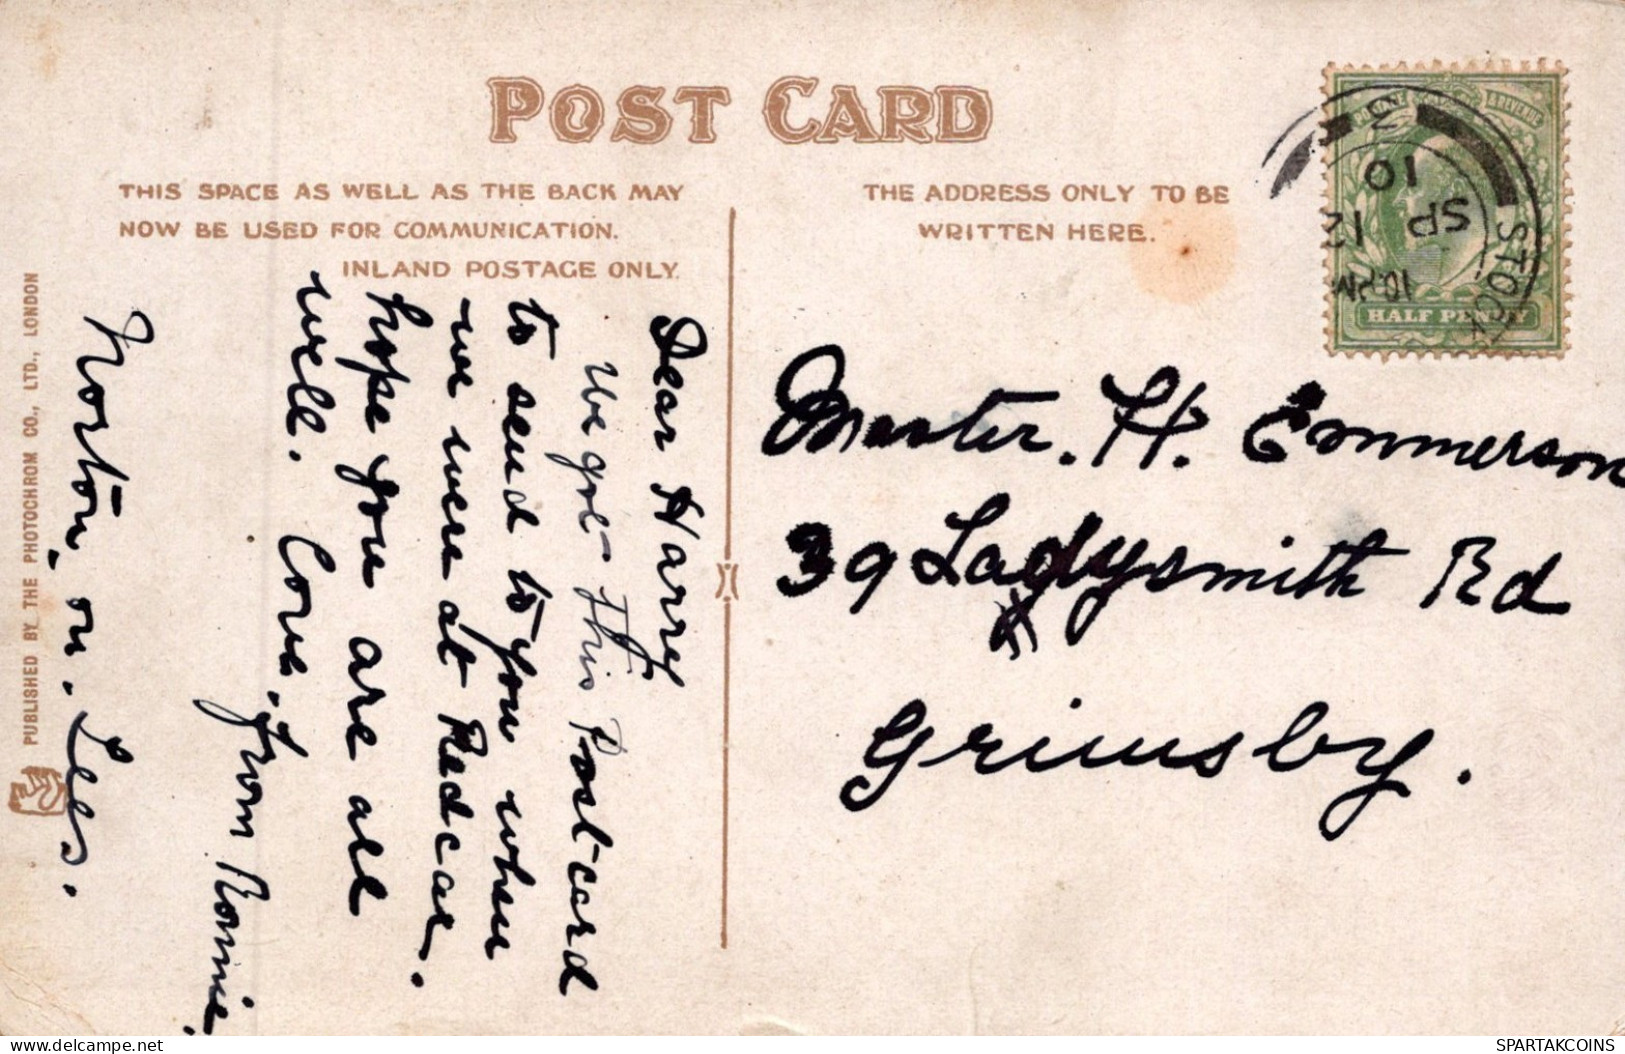 POST CARD
THIS SPACE AS WELL AS THE BACK MAY
NOW BE USED FOR COMMUNICATION.
INLAND POSTAGE ONLY.
THE ADDRESS ONLY TO BE
WRITTEN HERE.
HALF PENNY
STOCK
10
SP 12
3
Dear Harry
We got This Post-card
to send to you when
we were at Redcar.
hope you are all
well. Love,
from Ronnie.
Norton, on. Tees.
Master. H. Emmerson
39 Ladysmith Rd
Grimsby.
PUBLISHED BY THE PHOTOCHROM CO., LTD., LONDON
SPARTAKCOINS